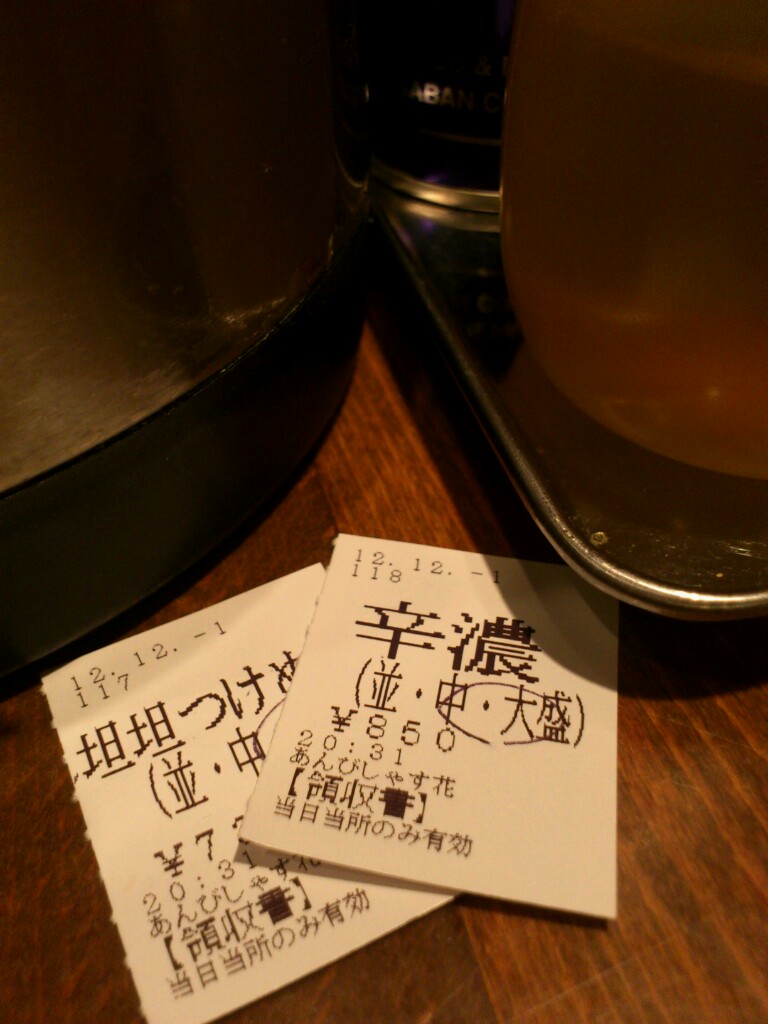 ABAN C
12. 12. -1
118
辛濃
(並・中・大盛)
¥850
20:31
あんびしゃす花
【領収書】
当日当所のみ有効
12. 12. -1
117
坦坦つけめ
(並・中
¥7
20:31
あんびしゃす花
【領収書】
当日当所のみ有効